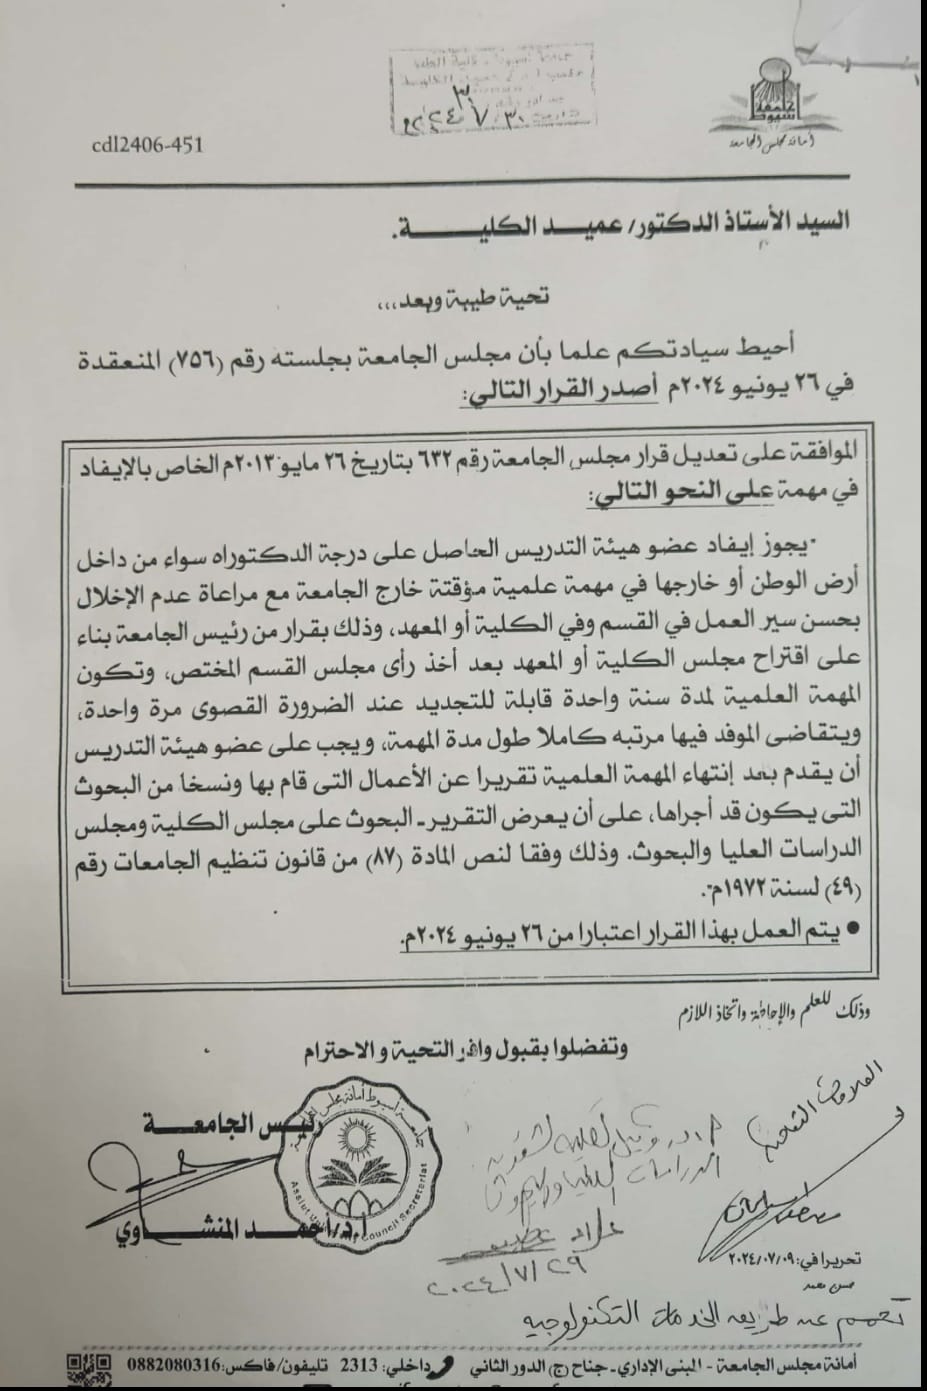 ٢٠٢٤/٧/٣٠
جامعة أسيوط
أمانة مجلس الجامعة
cdl2406-451
السيد الأستاذ الدكتور/ عميـد الكليـــــــة.
تحية طيبة وبعد،،،
أحيط سيادتكم علما بأن مجلس الجامعة بجلسته رقم (٧٥٦) المنعقدة
في ٢٦ يونيو ٢٠٢٤م أصدر القرار التالي:
الموافقة على تعديل قرار مجلس الجامعة رقم ٦٣٢ بتاريخ ٢٦ مايو ٢٠١٣م الخاص بالإيفاد
في مهمة على النحو التالي:
"يجوز إيفاد عضو هيئة التدريس الحاصل على درجة الدكتوراه سواء من داخل
أرض الوطن أو خارجها في مهمة علمية مؤقتة خارج الجامعة مع مراعاة عدم الإخلال
بحسن سير العمل في القسم وفي الكلية أو المعهد، وذلك بقرار من رئيس الجامعة بناء
على اقتراح مجلس الكلية أو المعهد بعد أخذ رأى مجلس القسم المختص، وتكون
المهمة العلمية لمدة سنة واحدة قابلة للتجديد عند الضرورة القصوى مرة واحدة،
ويتقاضى الموفد فيها مرتبه كاملا طول مدة المهمة، ويجب على عضو هيئة التدريس
أن يقدم بعد إنتهاء المهمة العلمية تقريرا عن الأعمال التى قام بها ونسخا من البحوث
التى يكون قد أجراها، على أن يعرض التقرير ـ البحوث على مجلس الكلية ومجلس
الدراسات العليا والبحوث. وذلك وفقا لنص المادة (٨٧) من قانون تنظيم الجامعات رقم
(٤٩) لسنة ١٩٧٢م".
• يتم العمل بهذا القرار اعتبارا من ٢٦ يونيو ٢٠٢٤م.
وذلك للعلم والإحاطة واتخاذ اللازم
وتفضلوا بقبول وافر التحية والاحترام
العلاقات الثقافية
رئيس الجامعـــــة
الدراسات العليا والبحوث
أ.د/ أحمـد المنشـاوي
٢٠٢٤/٧/٢٩
تحريرا في: ٢٠٢٤/٠٧/٠٩
تعمم عن طريق الخدمات التكنولوجيه
أمانة مجلس الجامعة - المبنى الإداري - جناح (ج) الدور الثاني داخلي: 2313 تليفون/فاكس: 0882080316